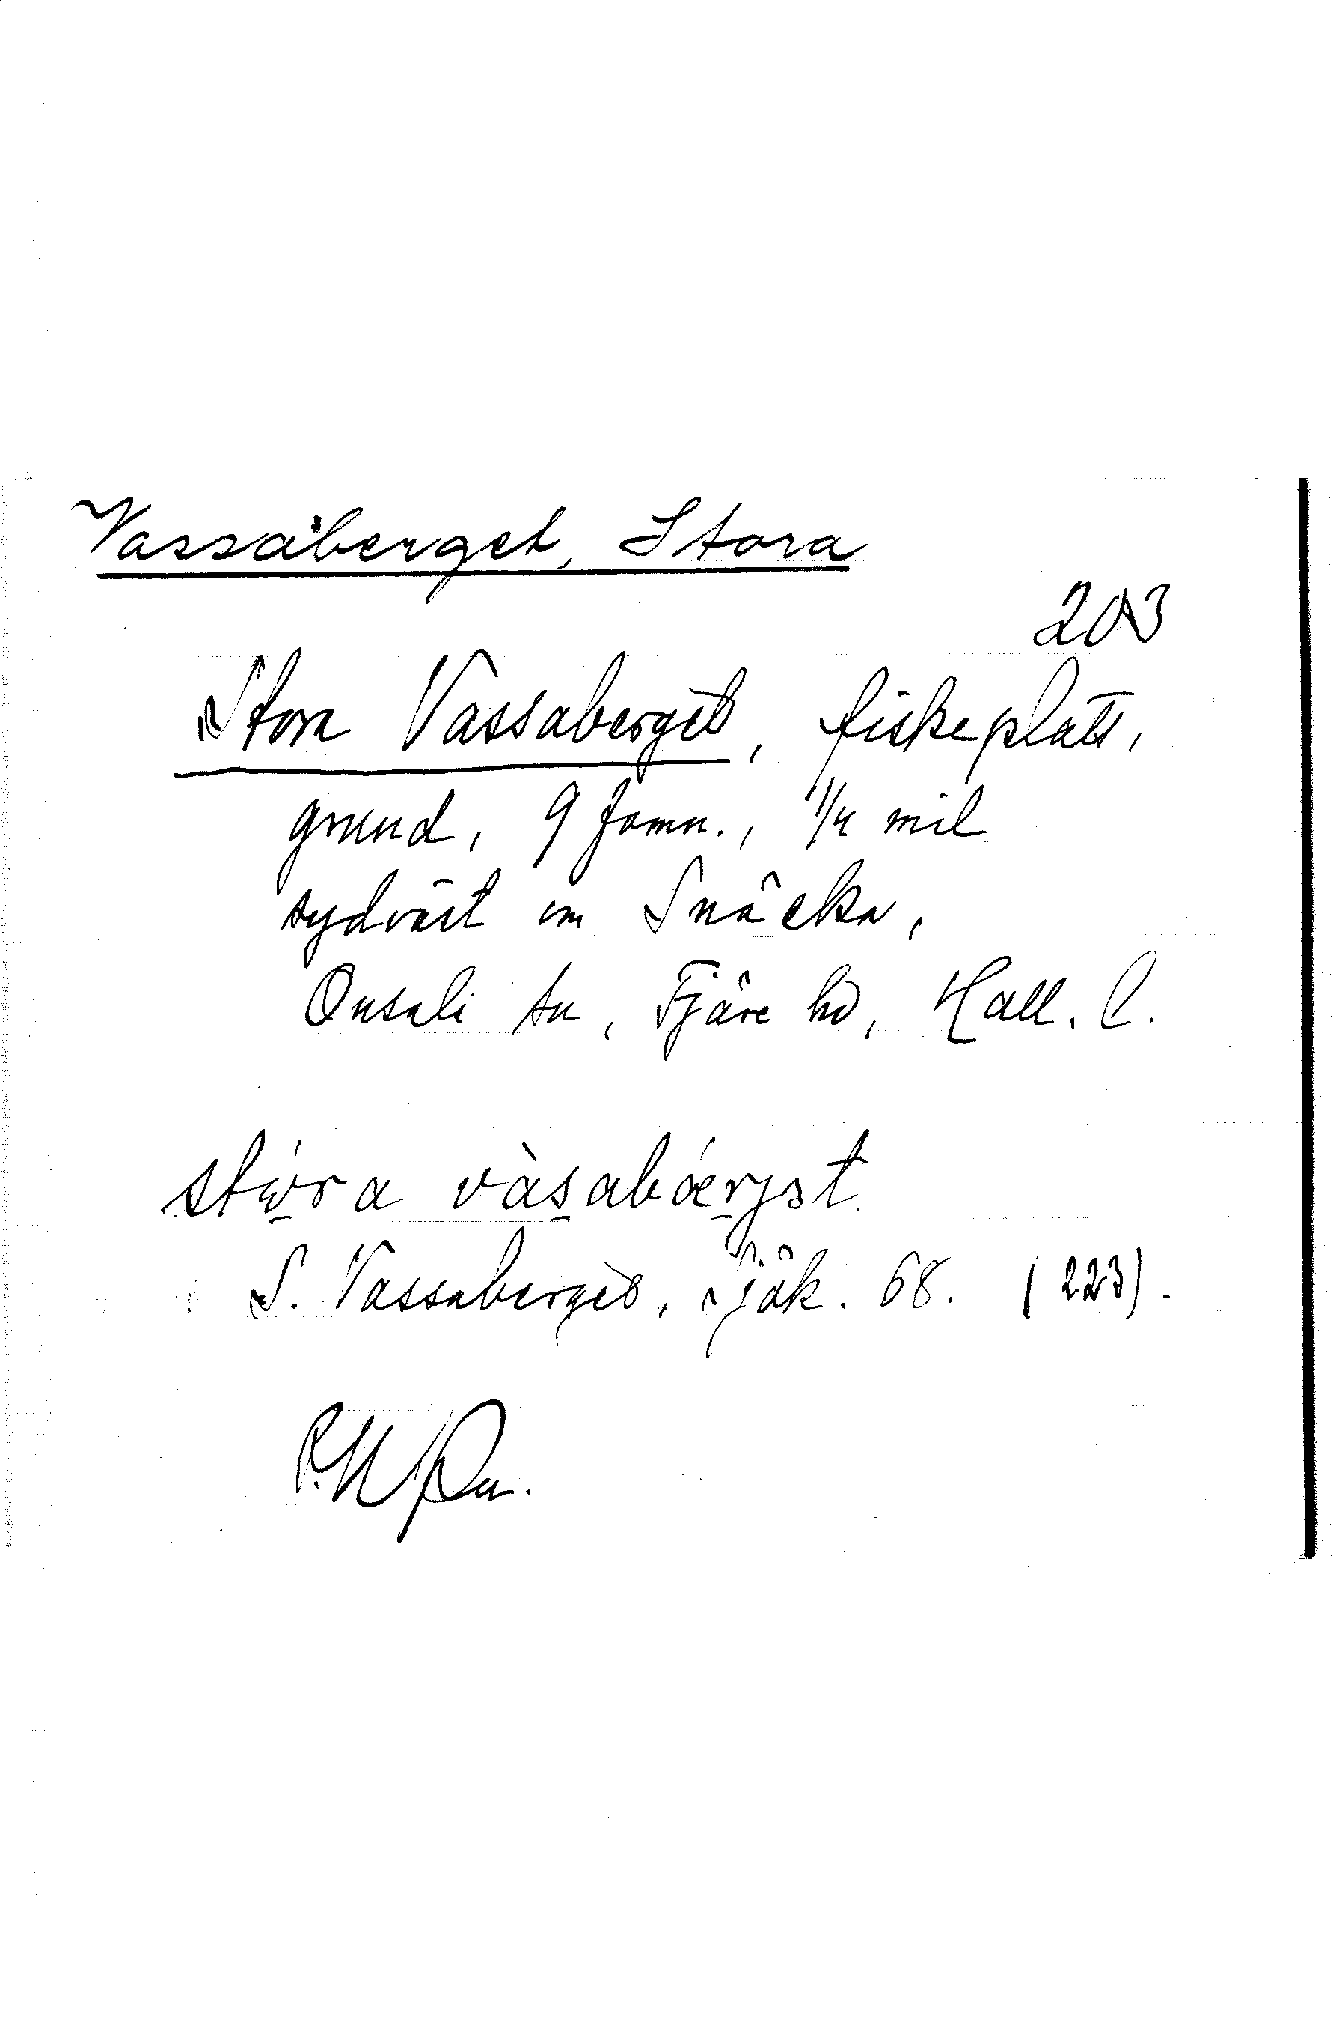 Vassaberget, Stora
203
Stora Vassaberget, fiskeplats,
grund, 9 famn., 1/4 mil
sydväst om Snäcka,
Onsala sn, Fjäre hd, Hall. l.
stóra vàsabǽrjət
S. Vassaberget, Sjök. 68. (223).